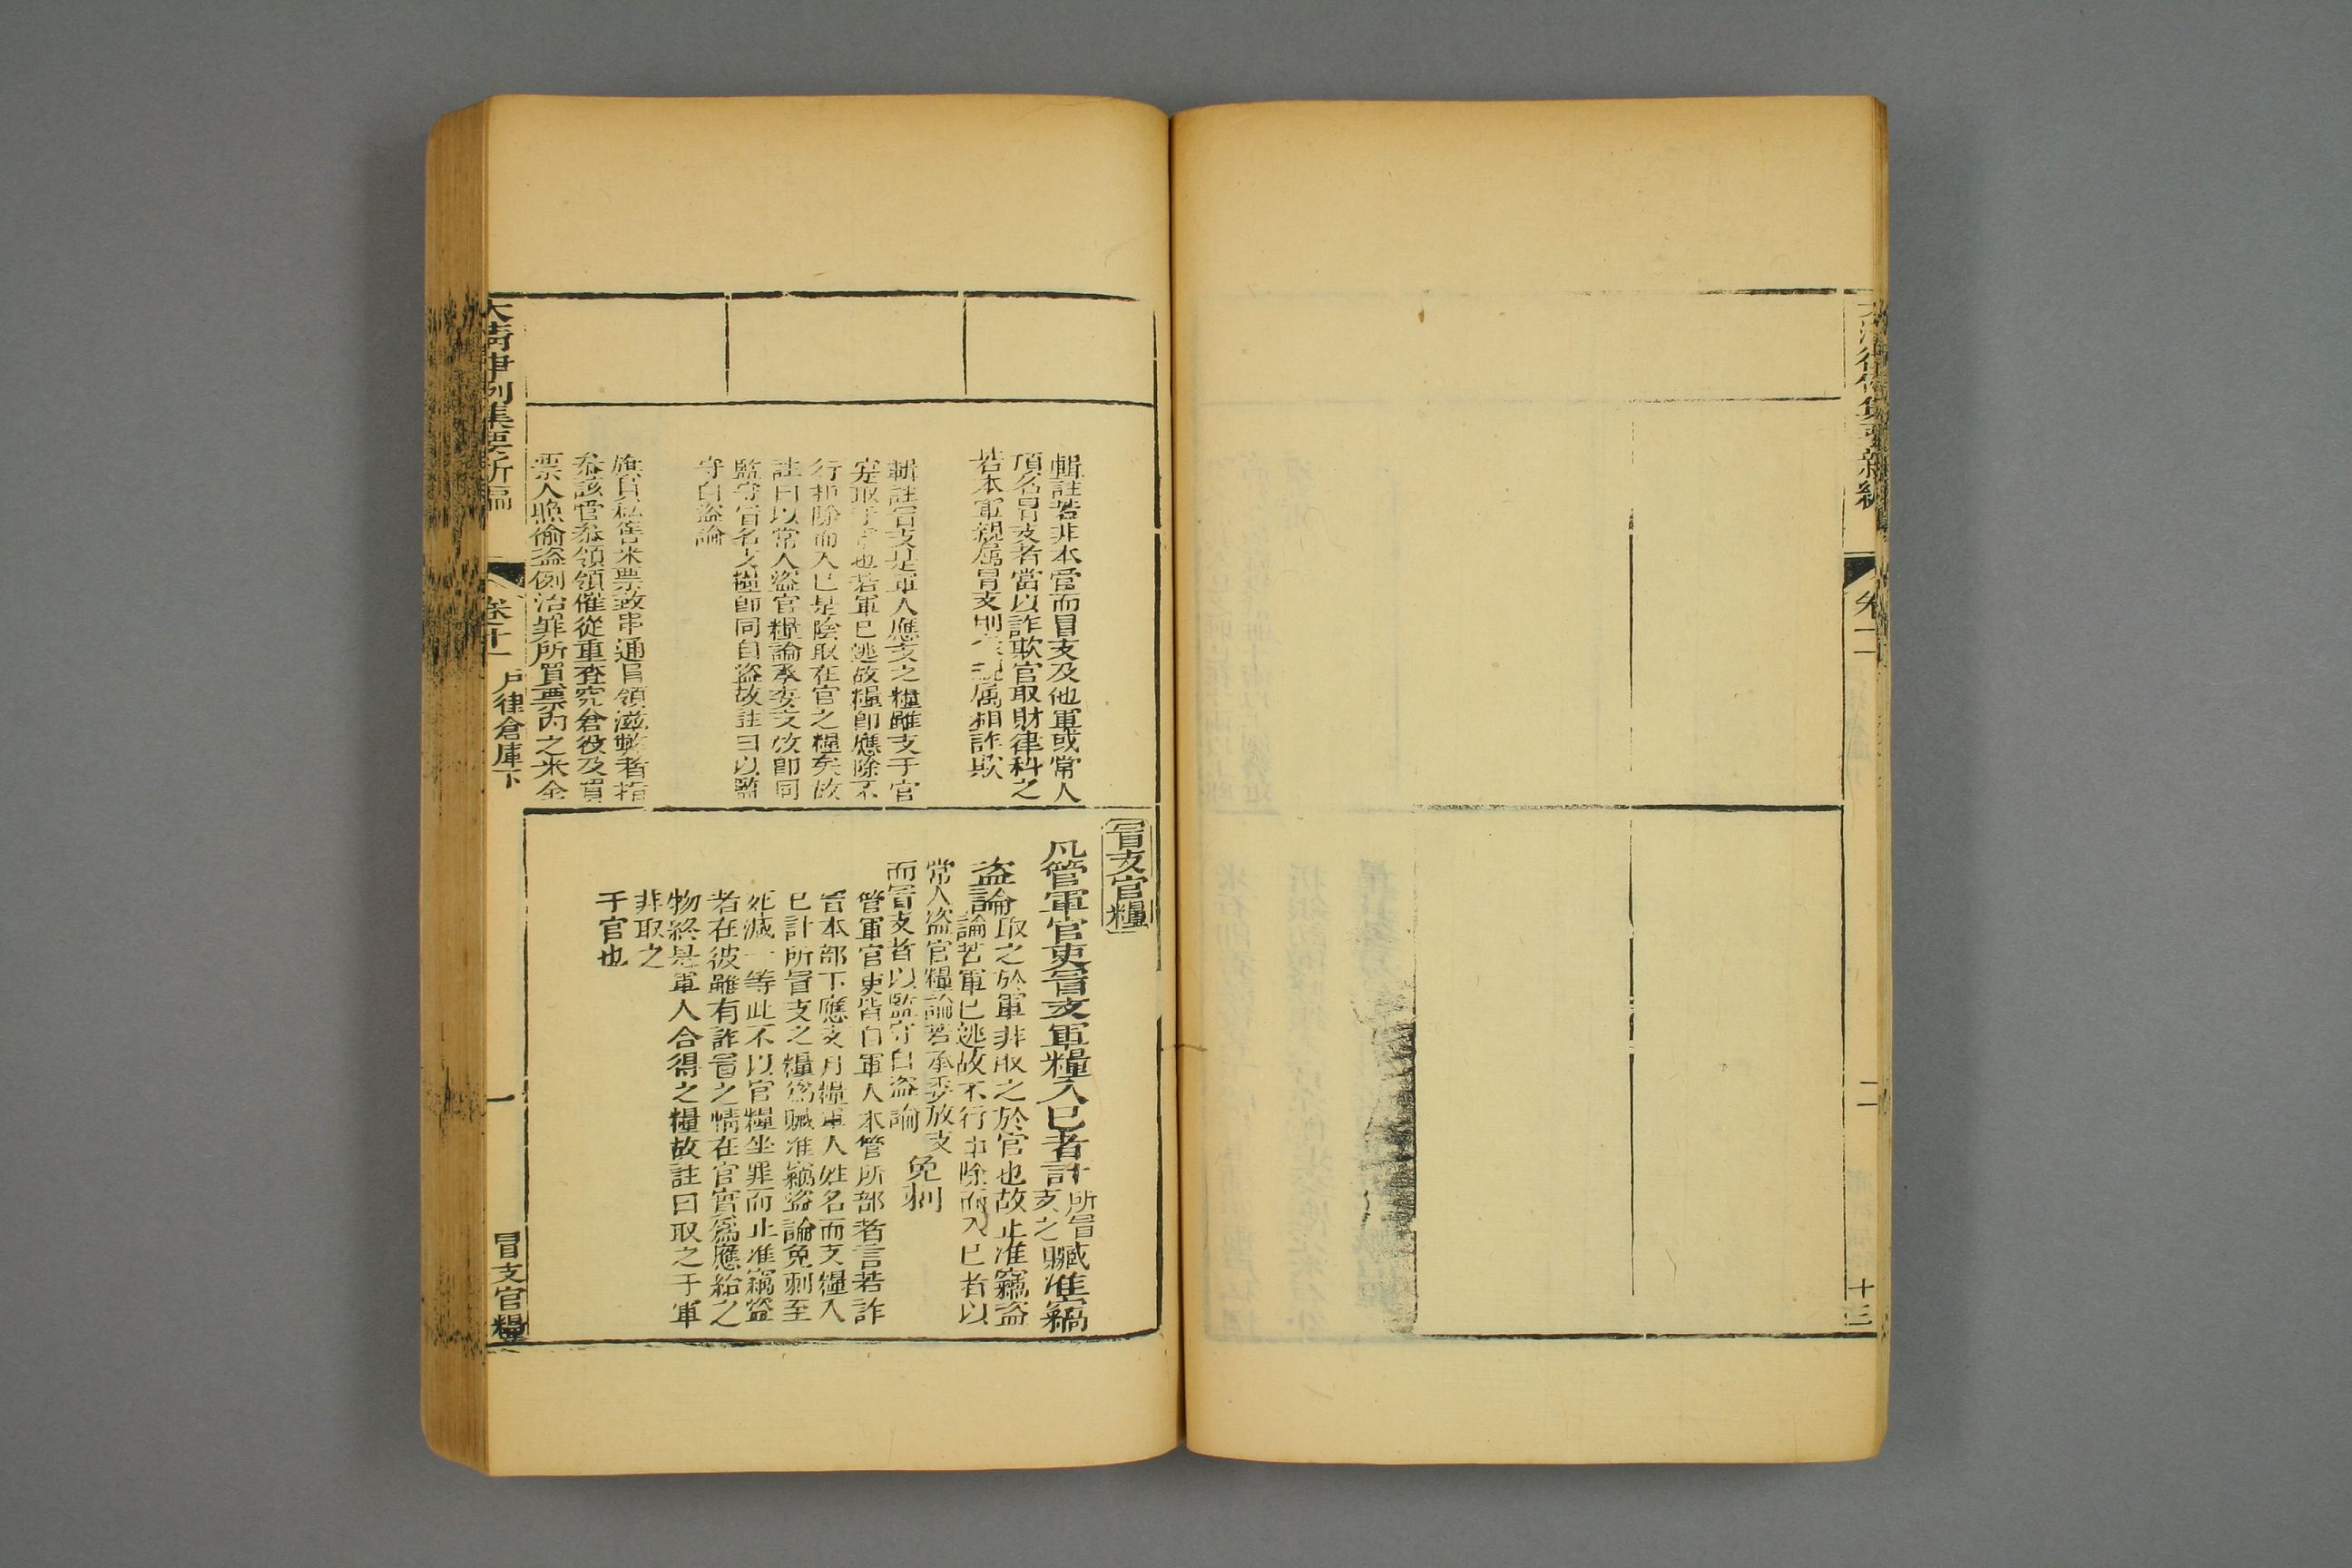 大清律例集要新編
卷十一
十三
輯註若非本管而冒支及他軍或常人
頂名冒支者當以詐欺官取財律科之
若本軍親屬冒支則
屬相詐欺
輯註冒支是軍人應支之糧雖支于官
寔取于
也若軍已逃故糧卽應除不
行扣除而入已是陰取在官之糧矣故
註曰以常人盜官糧論承委支放卽同
監守冒名支糧卽同自盜故註曰以監
守自盜論
旗員私售米票致串通冒領滋弊者指
叅該管叅領領催從重查究倉役及買
票人照偷盜例治罪所買票內之米全
冒支官糧
凡管軍官吏冒支軍糧入已者計所冒
支之贓准竊
盜論取之於軍非取之於官也故止准竊盜
論若軍已逃故不行扣除而入已者以
常人盜官糧論若承委放支
而冒支者以監守自盜論
免刺
管軍官吏皆自軍人本管所部者言若詐
冒本部下應支月糧軍人姓名而支糧入
已計所冒支之糧爲贓准竊盜論免刺至
死減一等此不以官糧坐罪而止准竊盜
者在彼雖有詐冒之情在官實爲應給之
物終是軍人合得之糧故註曰取之于軍
非取之
于官也
大清律例集要新編
卷十一
戶律倉庫下
一
冒支官糧